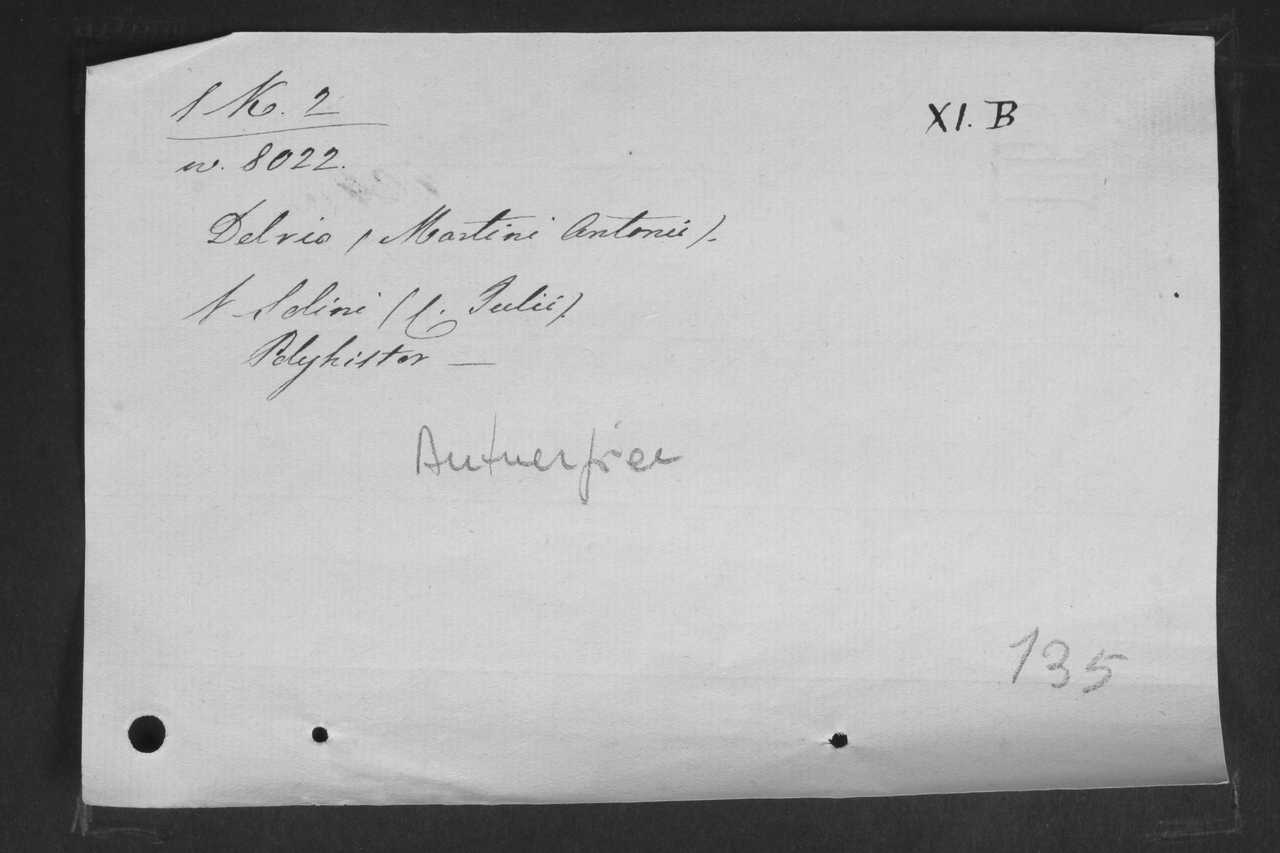 1 K. 2
w. 8022.
XI. B
Delrio (Martini Antonii).
Solini (C. Julii)
Polyhistor —
Antwerpiae
135